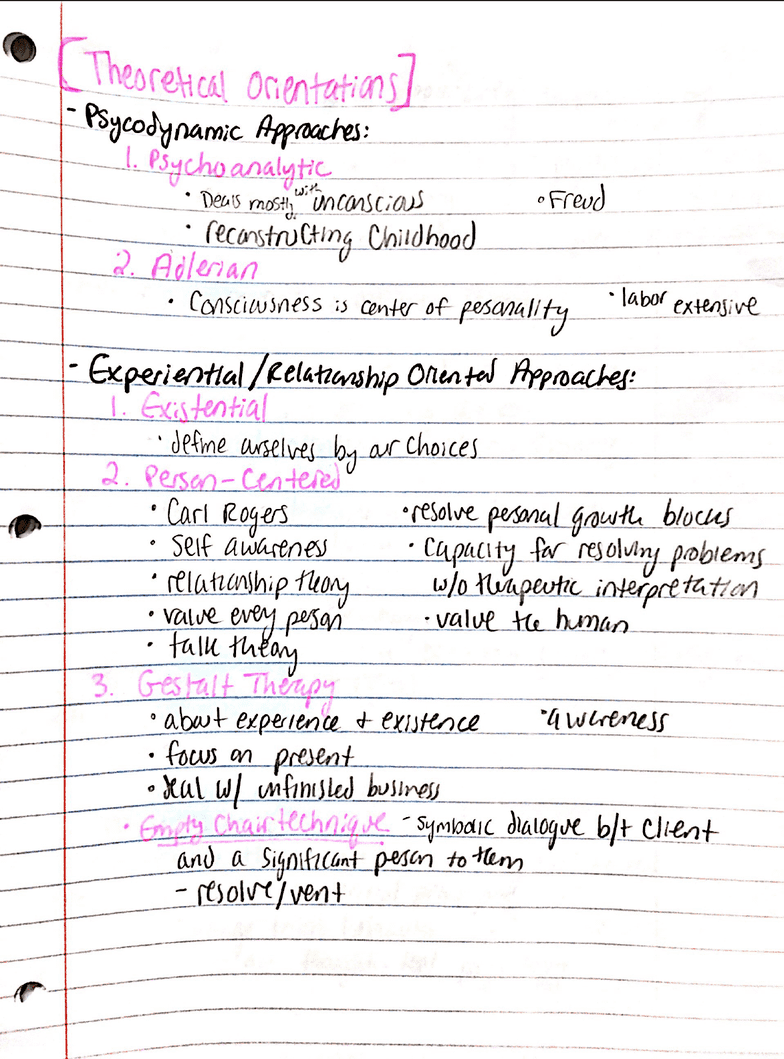 [Theoretical Orientations]
- Psycodynamic Approaches:
1. Psychoanalytic
• Deals mostly with unconscious • Freud
• reconstructing Childhood
2. Adlerian
• Consciousness is center of pesonality • labor extensive
- Experiential/Relationship Oriented Approaches:
1. Existential
• define ourselves by our choices
2. Person-Centered
• Carl Rogers • resolve pesonal growth blocks
• Self awareness • Capacity for resolving problems
• relationship theory w/o therapeutic interpretation
• value every person • value the human
• talk theory
3. Gestalt Therapy
• about experience + existence • awareness
• focus on present
• deal w/ unfinished business
• Empty Chair technique - symbolic dialogue b/t client
and a significant person to them
- resolve/vent